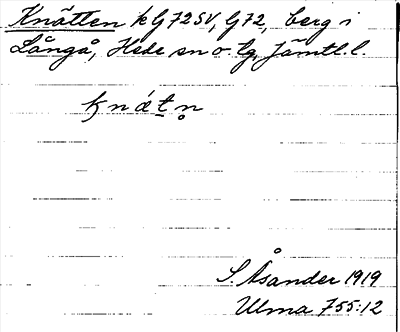 Knätten k G72SV, G72, berg i
Långå, Hede sn o. tg, Jämtl. l.
knǽt̲n̥
S. Åsander 1919
Ulma 755:12